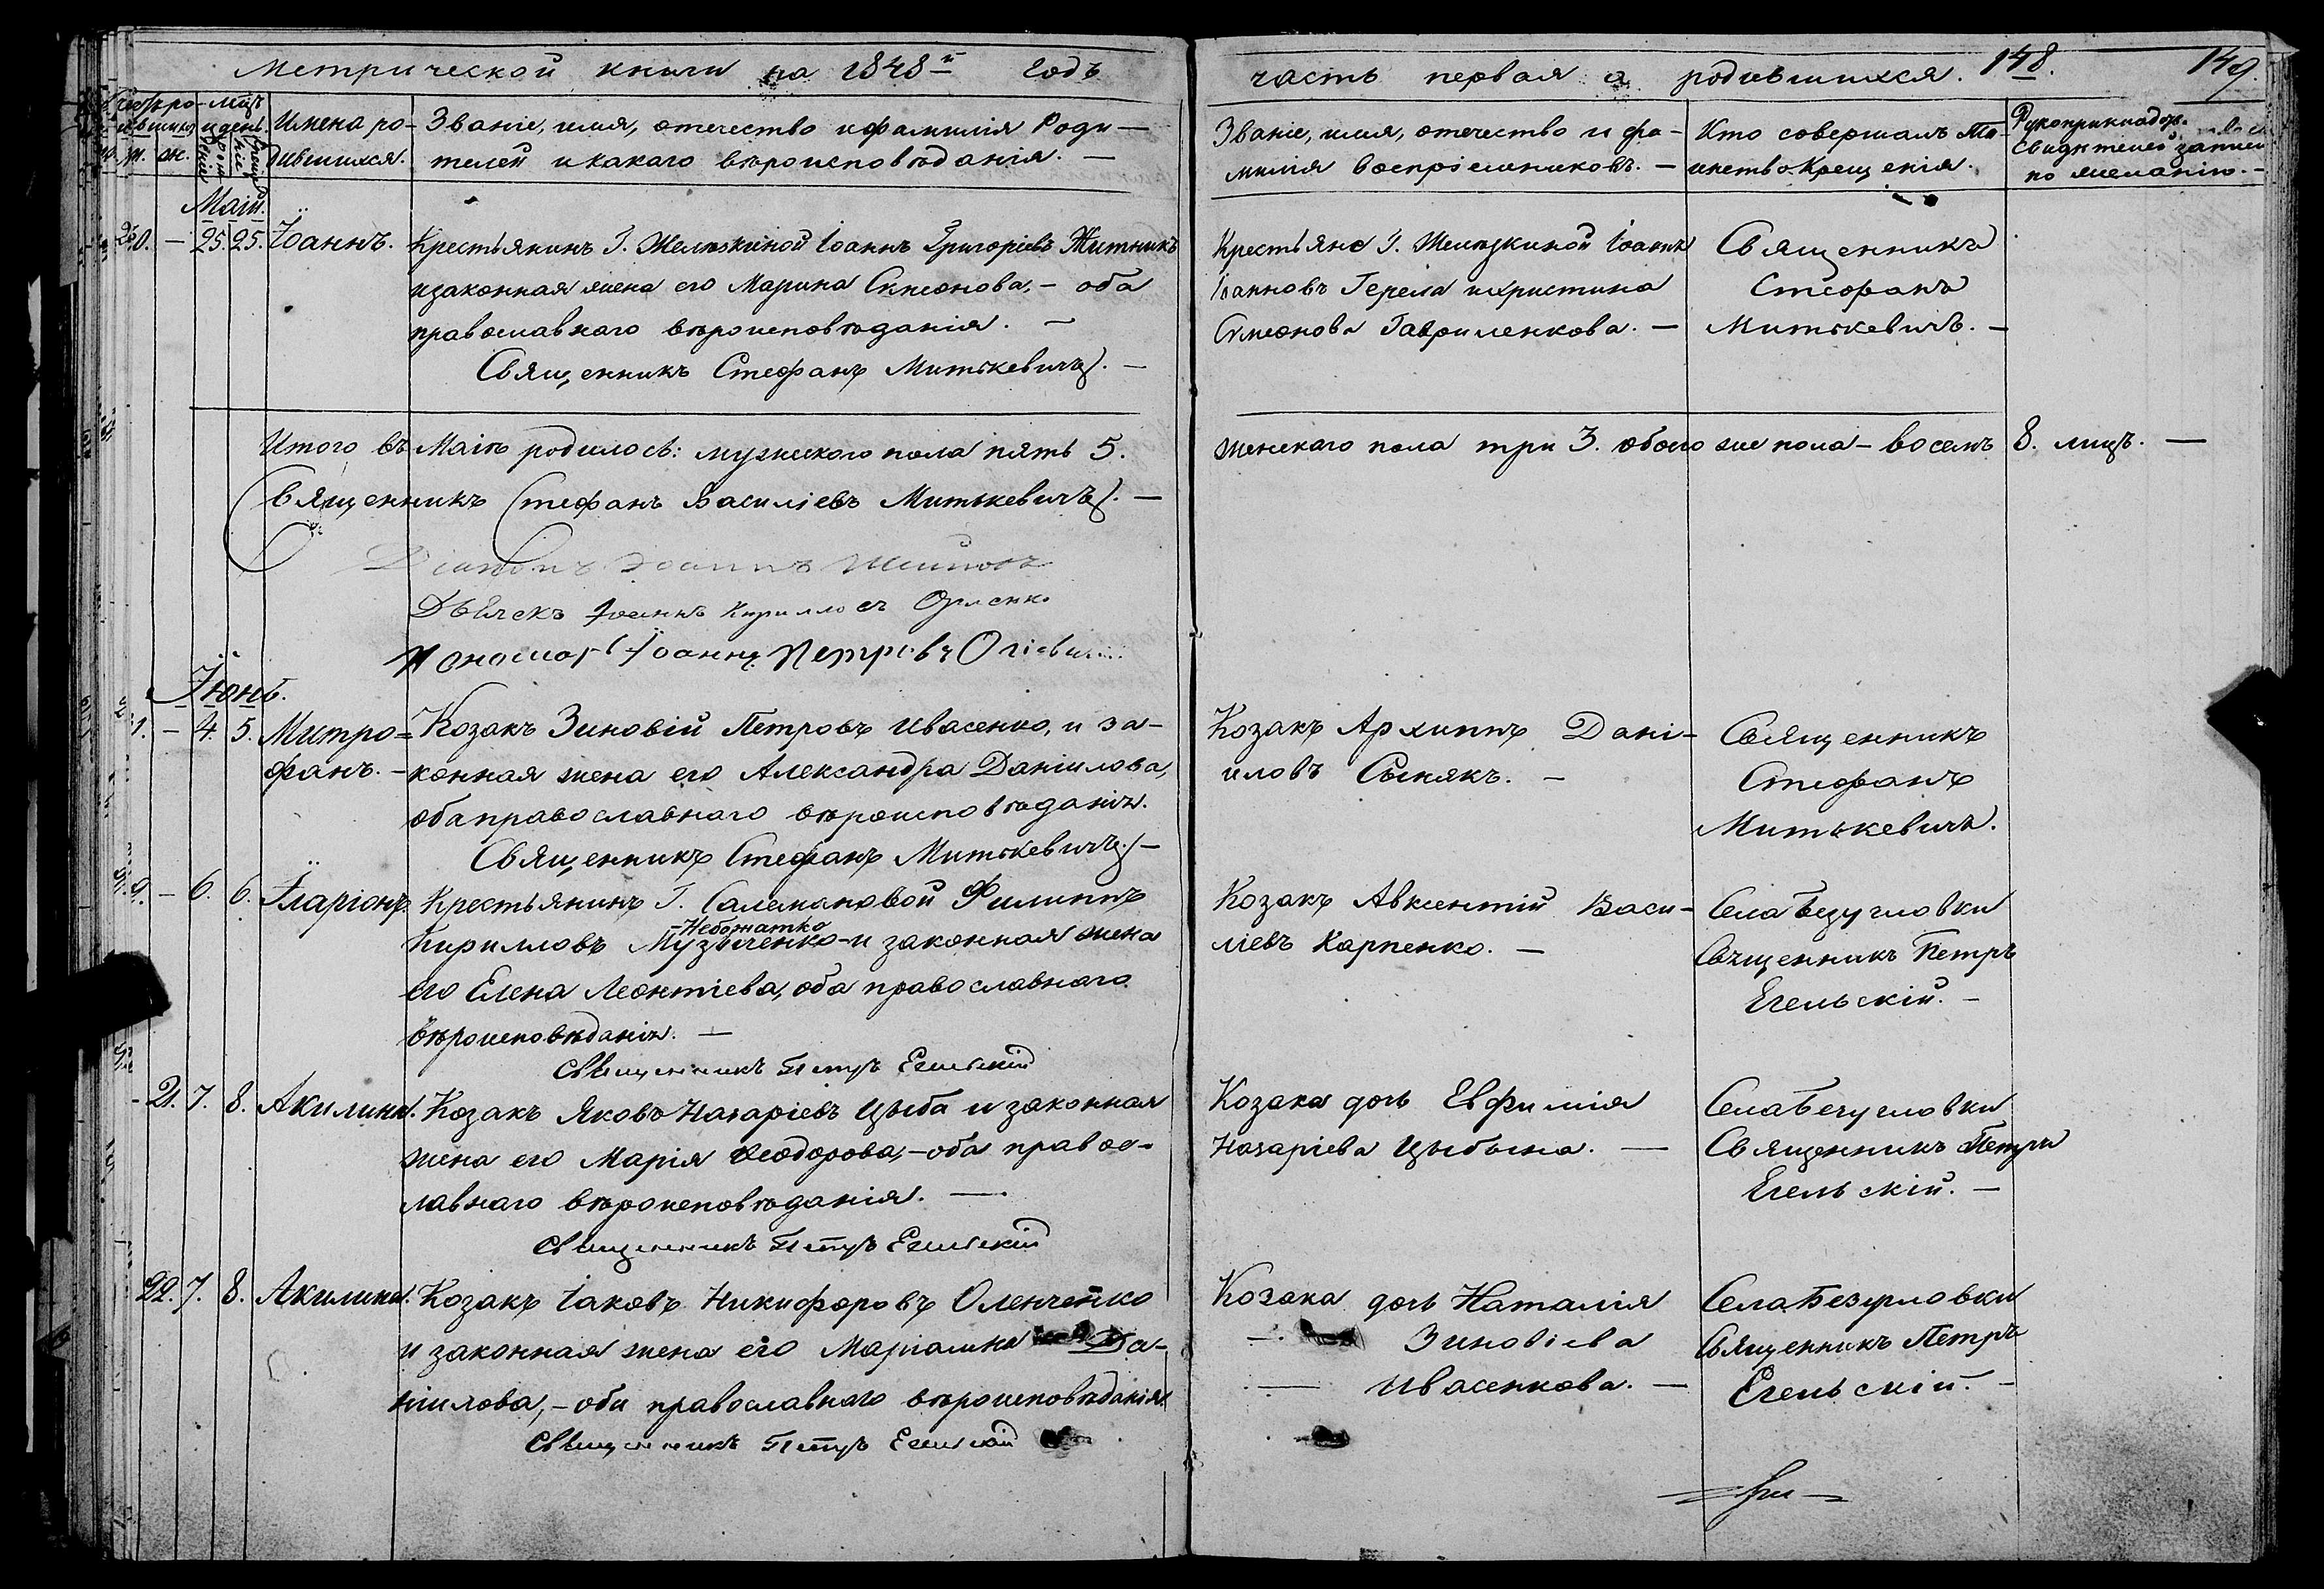 Метрической книги на 1848й годъ
часть первая о родившихся. 148. 149.
Имена ро-
дившихся.
Званіе, имя, отечество и фамилія Роди-
телей и какаго вѣроисповѣданія. —
Званіе, имя, отечество и фа-
милія воспріемниковъ. —
Кто совершалъ Та-
инство Крещенія.
Рукоприкладств.
свидѣтелей записи
по желанію. —
Маій.
20. — 25. 25. Іоаннъ.
Крестьянинъ Г. Желѣзкиной Іоаннъ Григоріевъ Житникъ
и законная жена его Марина Симеонова, — оба
православнаго вѣроисповѣданія. —
Священникъ Стефанъ Митькевичъ. —
Крестьяне Г. Желѣзкиной Іоаннъ
Іоанновъ Герела и Христина
Симеонова Гавриленкова. —
Священникъ
Стефанъ
Митькевичъ. —
Итого въ Маіѣ родилось: мужескаго пола пять 5. женскаго пола три 3. обоего же пола — восемь 8. лицъ. —
Священникъ Стефанъ Василіевъ Митькевичъ. —
Діаконъ Іоаннъ
Дьячекъ Іоаннъ Кирилловъ
Пономарь Іоаннъ Петровъ
Іюнь.
21. — 4. 5. Митро=
фанъ. —
Козакъ Зиновій Петровъ Ивасенко, и за-
конная жена его Александра Даніилова,
оба православнаго вѣроисповѣданія.
Священникъ Стефанъ Митькевичъ. —
Козакъ Архиппъ Дані-
иловъ Сынякъ. —
Священникъ
Стефанъ
Митькевичъ.
— 6. 6. Іларіонъ.
Крестьянинъ Г. Салемановой Филиппъ
— Небожатко
Кирилловъ Музыченко — и законная жена
его Елена Леонтіева, оба православнаго
вѣроисповѣданія. —
Священникъ Петръ Егельскій
Козакъ Авксентій Васи-
ліевъ Карпенко. —
Села Безугловки
Священникъ Петръ
Егельскій. —
- 21. 7. 8. Акилина.
Козакъ Яковъ Назаріевъ Цыба и законная
жена его Марія Ѳеодорова, — оба правос-
лавнаго вѣроисповѣданія. —
Священникъ Петръ Егельскій
Козака дочь Евфимія
Назаріева Цыбына. —
Села Безугловки
Священникъ Петръ
Егельскій. —
22. 7. 8. Акилина.
Козакъ Іаковъ Никифоровъ Оленченко
и законная жена его Маріамна Да-
ніилова, — оба православнаго вѣроисповѣданія
Священникъ Петръ Егельскій
Козака дочь Наталія
— Зиновіева
— Ивасенкова. —
Села Безугловки
Священникъ Петръ
Егельскій. —